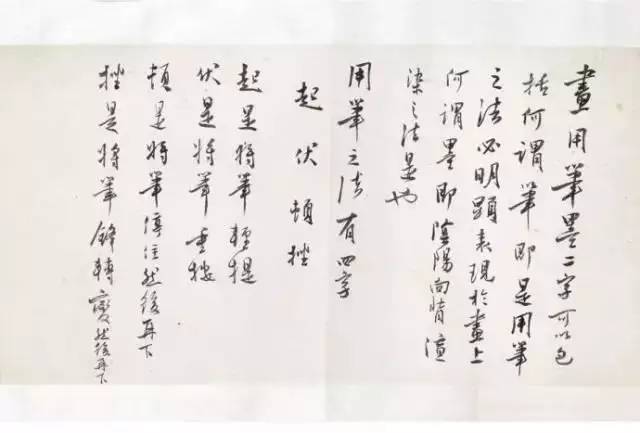 畫用筆墨二字可以包
括何謂筆即是用筆
之法必明顯表現於畫上
何謂墨即陰陽向背渲
染之法是也
用筆之法有四字
起伏頓挫
起是將筆輕提
伏是將筆重按
頓是將筆停住然後再下
挫是將筆鋒轉變然後再下